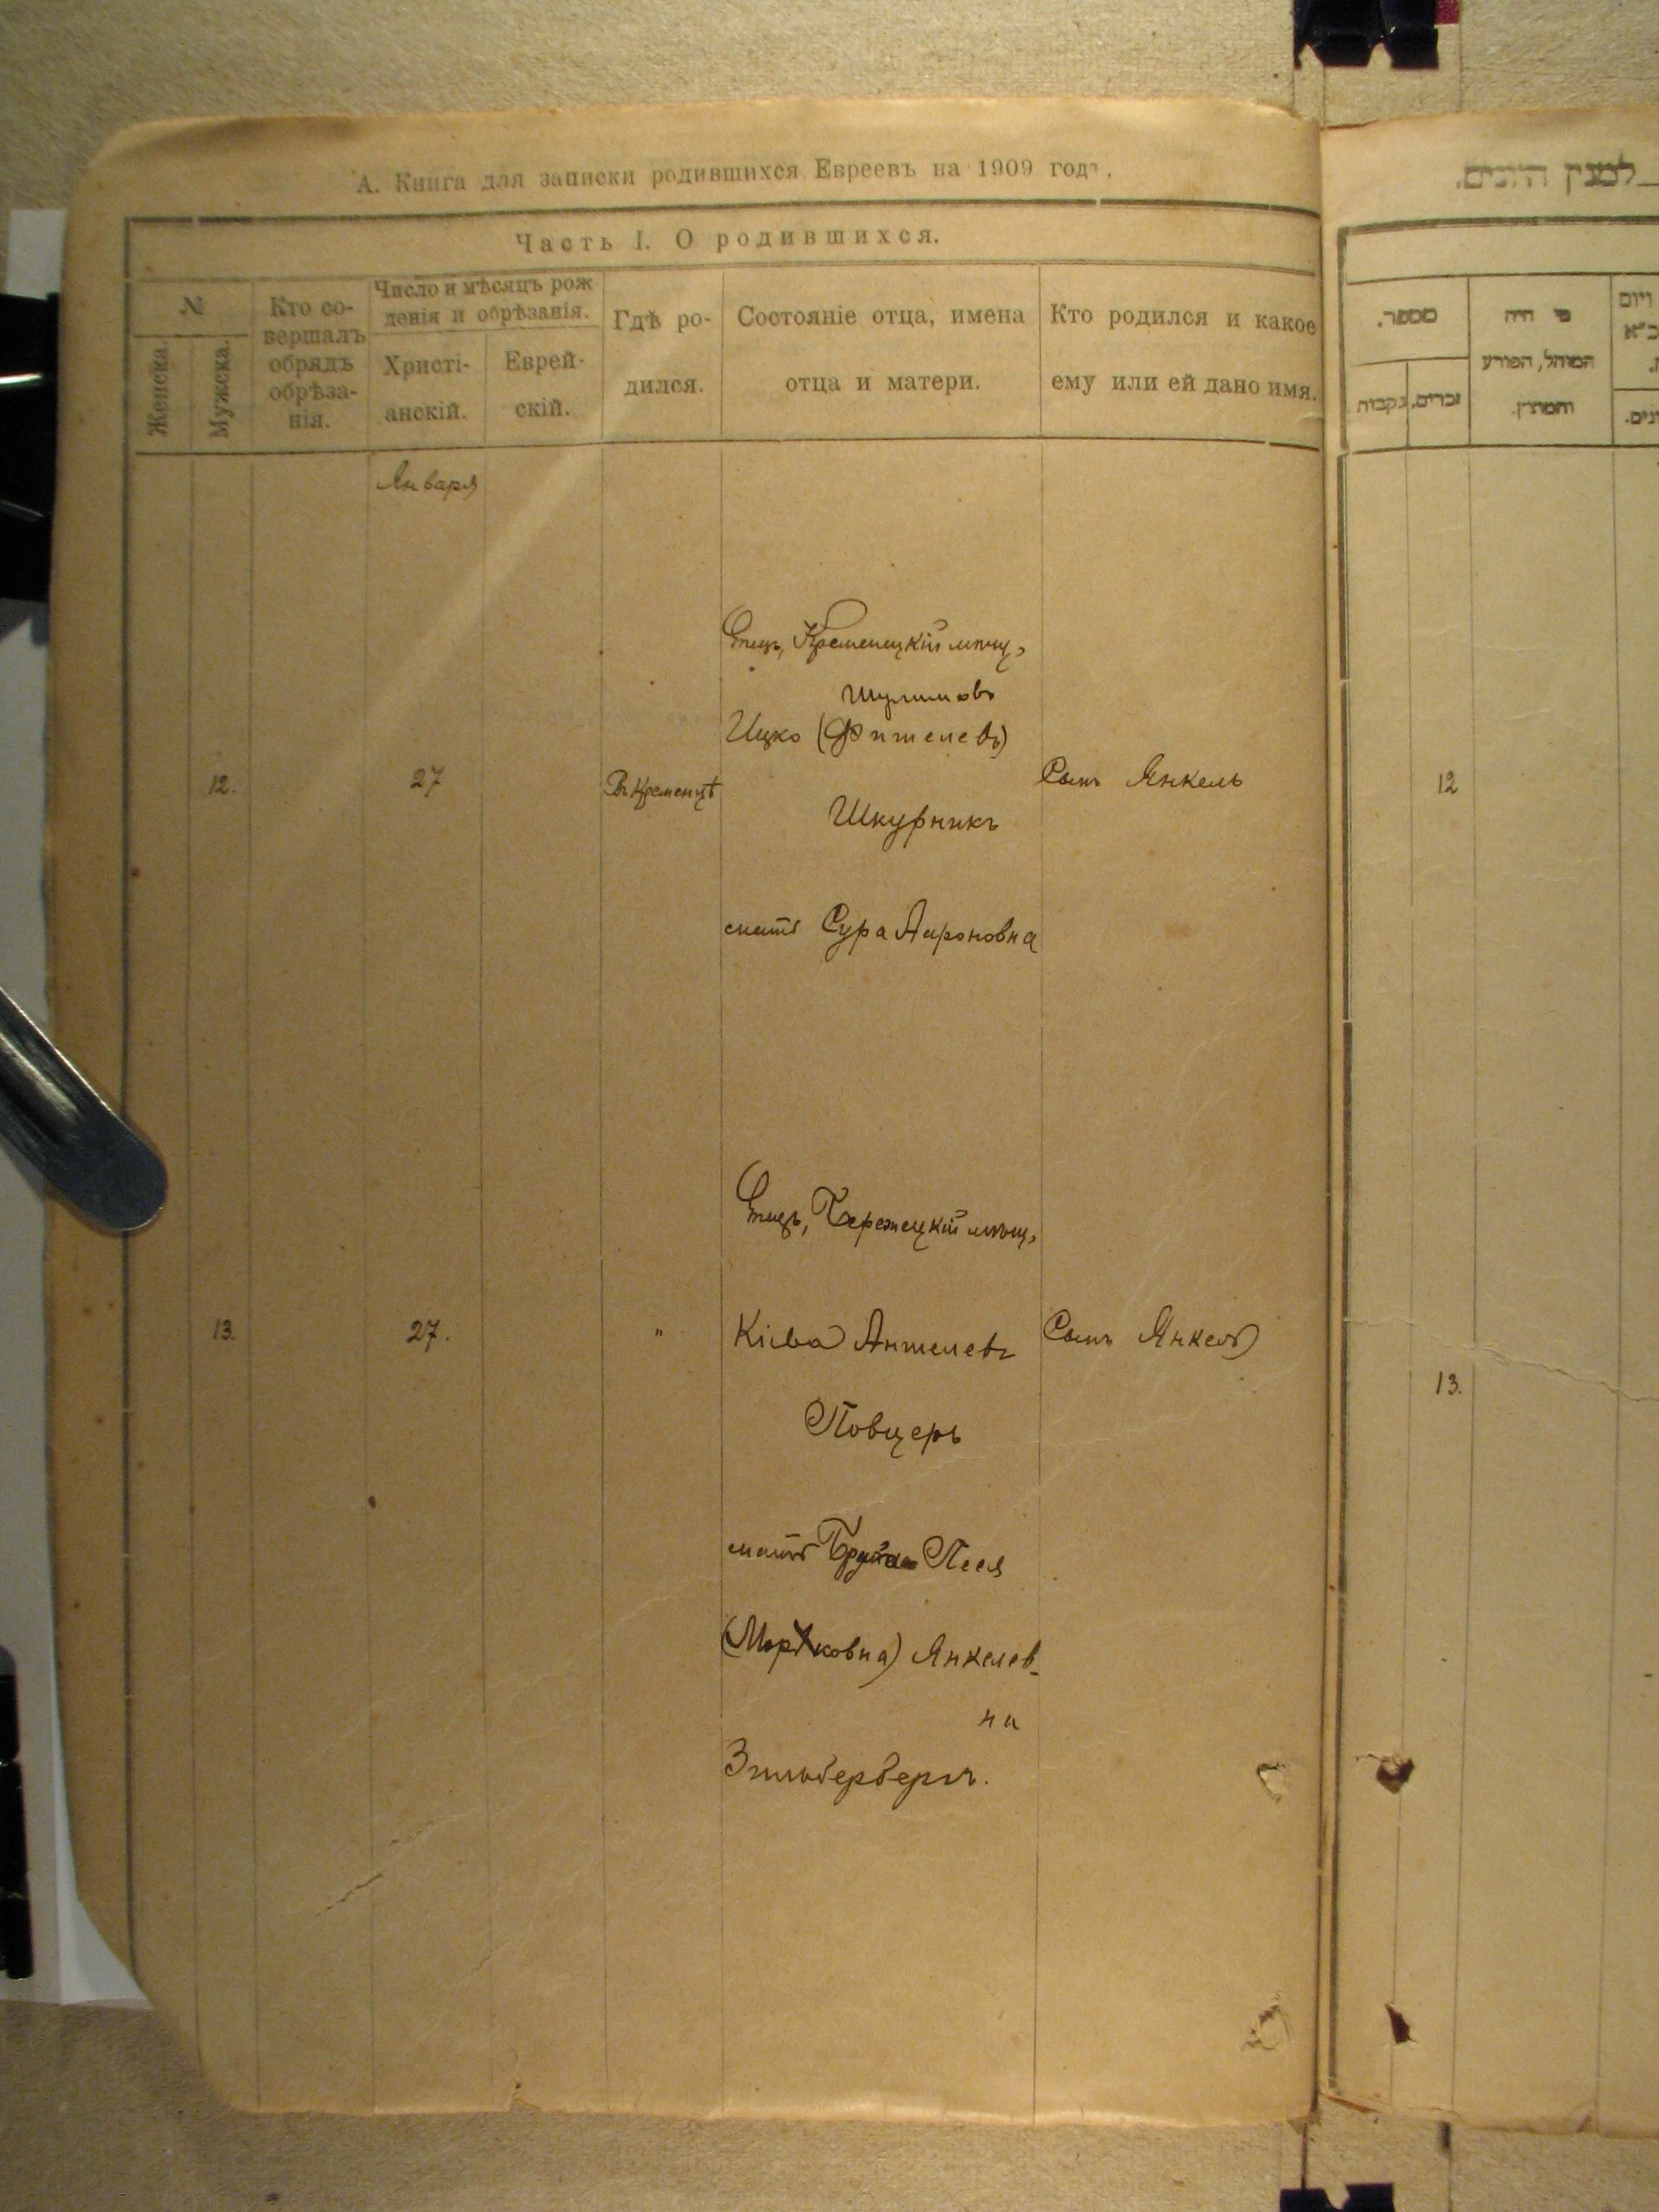 А. Книга для записки родившихся Евреевъ на 1909 годъ.
Часть I. О родившихся.
№
Женска.
Мужска.
Кто со-
вершалъ
обрядъ
обрѣза-
нія.
Число и мѣсяцъ рож-
денія и обрѣзанія.
Христі-
анскій.
Еврей-
скій.
Гдѣ ро-
дился.
Состояніе отца, имена
отца и матери.
Кто родился и какое
ему или ей дано имя.
Января
12.
27
Въ Кременцѣ
Отецъ, Кременецкій мѣщ,
Шулимовъ
Ицко (Фишелевъ)
Шкурникъ
мать Сура Аароновна
Сынъ Янкель
13.
27.
"
Отецъ, Бережецкій мѣщ,
Ківа Аншелевъ
Повцеръ
мать Песя
(Морковна) Янкелев-
на
Зильберберг.
Сынъ Янкель
למנין הזנים.
מספר.
זכרים,
נקבות
מי היה
המוהל, הפורע
והמוצץ.
12
13.